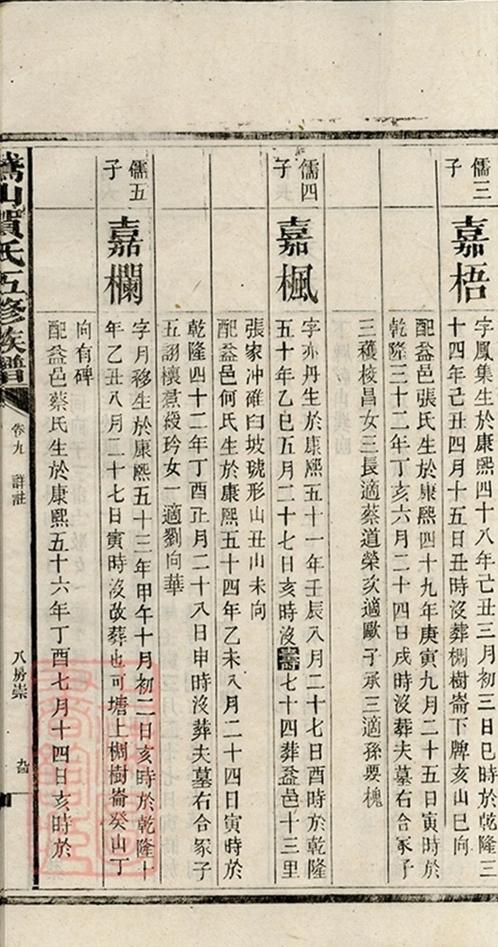 儒三子
嘉梧
字鳳集生於康熙四十八年己丑三月初三日巳時於乾隆三
十四年己丑四月十五日丑時沒葬棡樹崙下牌亥山巳向
配益邑張氏生於康熙四十九年庚寅九月二十五日寅時於
乾隆三十二年丁亥六月二十四日戌時沒葬夫墓右合冢子
三穫梭昌女三長適蔡道榮次適歐子承三適孫要槐
儒四子
嘉楓
字亦丹生於康熙五十一年壬辰八月二十七日酉時於乾隆
五十年乙巳五月二十七日亥時沒壽七十四葬益邑十三里
張家冲碓臼坡琥形山丑山未向
配益邑何氏生於康熙五十四年乙未八月二十四日寅時於
乾隆四十二年丁酉正月二十八日申時沒葬夫墓右合冢子
五詡懷煮緞玪女一適劉向華
儒五子
嘉欄
字月移生於康熙五十三年甲午十月初二日亥時於乾隆十
年乙丑八月二十七日寅時沒改葬也可塘上棡樹崙癸山丁
向有碑
配益邑蔡氏生於康熙五十六年丁酉七月十四日亥時於
山賀氏五修族譜
卷九 詳註
八房崇